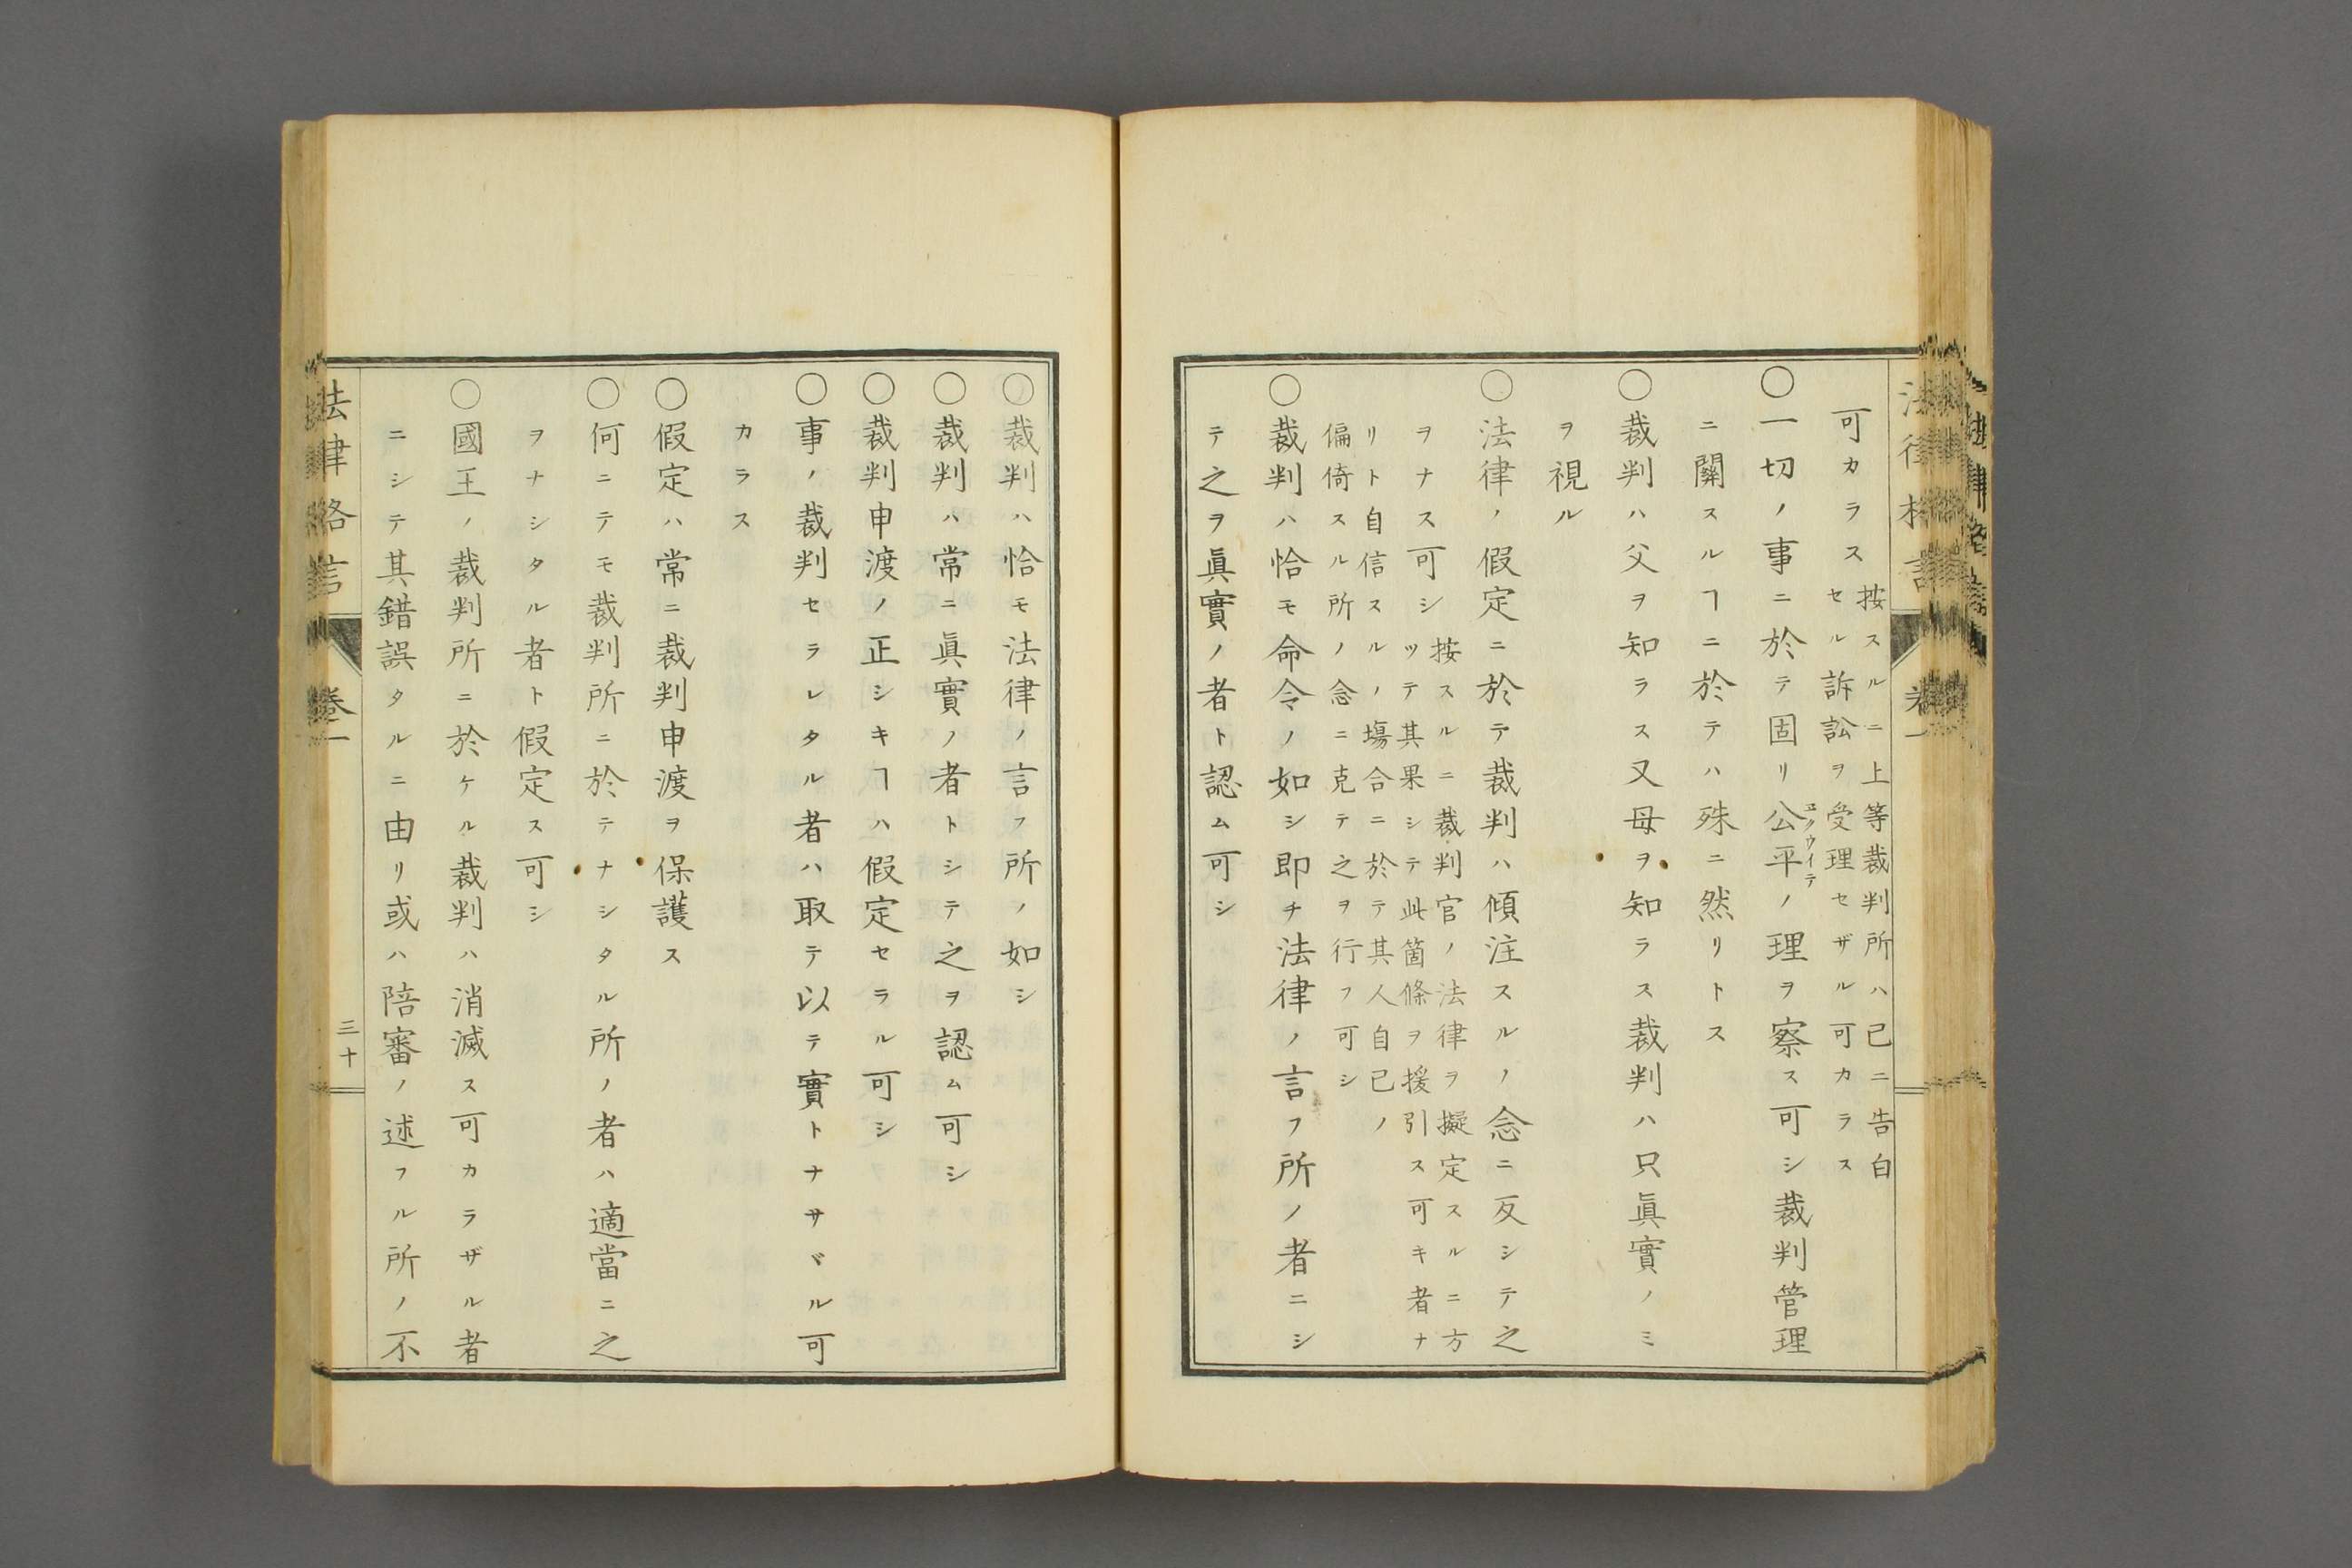 可カラス
按スルニ上等裁判所ハ已ニ告白
セル訴訟ヲ受理セザル可カラス
〇一切ノ事ニ於テ固リ公平ノ理ヲ察ス可シ裁判管理
ニ關スルヿニ於テハ殊ニ然リトス
〇裁判ハ父ヲ知ラス又母ヲ知ラス裁判ハ只眞實ノミ
ヲ視ル
〇法律ノ假定ニ於テ裁判ハ傾注スルノ念ニ反シテ之
ヲナス可シ
按スルニ裁判官ノ法律ヲ擬定スルニ方
ツテ其果シテ此箇條ヲ援引ス可キ者ナ
リト自信スルノ塲合ニ於テ其人自己ノ
偏倚スル所ノ念ニ克テ之ヲ行フ可シ
〇裁判ハ恰モ命令ノ如シ即チ法律ノ言フ所ノ者ニシ
テ之ヲ眞實ノ者ト認ム可シ
〇裁判ハ恰モ法律ノ言フ所ノ如シ
〇裁判ハ常ニ眞實ノ者トシテ之ヲ認ム可シ
〇裁判申渡ノ正シキヿハ假定セラル可シ
〇事ノ裁判セラレタル者ハ取テ以テ實トナサヾル可
カラス
〇假定ハ常ニ裁判申渡ヲ保護ス
〇何ニテモ裁判所ニ於テナシタル所ノ者ハ適當ニ之
ヲナシタル者ト假定ス可シ
〇國王ノ裁判所ニ於ケル裁判ハ消滅ス可カラザル者
ニシテ其錯誤タルニ由リ或ハ陪審ノ述フル所ノ不
法律格言
卷一
三十